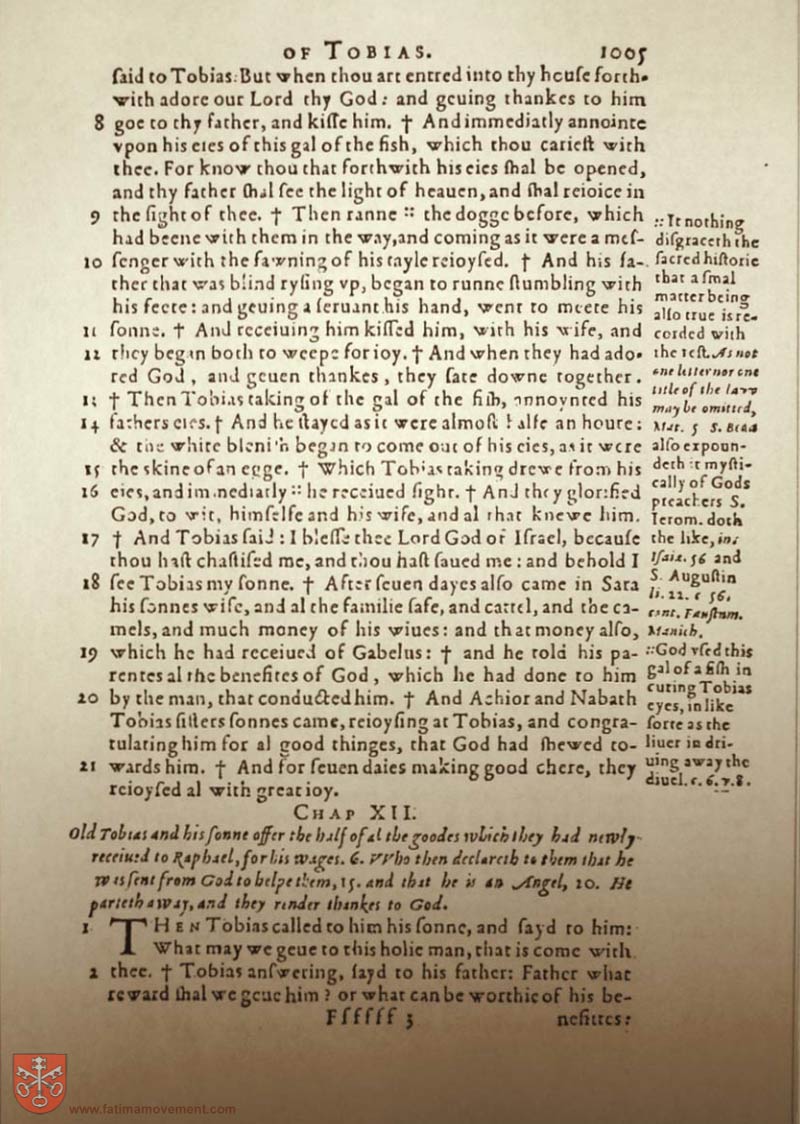 OF TOBIAS. 1005
ſaid to Tobias: But when thou art entred into thy houſe forth-
with adore our Lord thy God: and geuing thankes to him
8 goe to thy father, and kiſſe him. † And immediatly annointe
vpon his eies of this gal of the fish, which thou carieſt with
thee. For know thou that forthwith his eies ſhal be opened,
and thy father ſhal ſee the light of heauen, and ſhal reioice in
9 the ſight of thee. † Then ranne :: the dogge before, which
had beene with them in the way, and coming as it were a meſ-
10 ſenger with the fawning of his tayle reioyſed. † And his fa-
ther that was blind ryſing vp, began to runne ſtumbling with
his feete: and geuing a ſeruant his hand, went to meete his
11 ſonne. † And receiuing him kiſſed him, with his wife, and
12 they began both to weepe for ioy. † And when they had ado-
red God, and geuen thankes, they ſate downe together.
13 † Then Tobias taking of the gal of the fiſh, annoynted his
14 fathers eies. † And he ſtayed as it were almoſt halfe an houre:
& the white blemiſh began to come out of his eies, as it were
15 the skine of an egge. † Which Tobias taking drewe from his
16 eies, and immediatly :: he receiued ſight. † And they glorified
God, to wit, himſelfe and his wife, and al that knewe him.
17 † And Tobias ſaid: I bleſſe thee Lord God of Iſrael, becauſe
thou haſt chaſtiſed me, and thou haſt ſaued me: and behold I
18 ſee Tobias my ſonne. † After ſeuen dayes alſo came in Sara
his ſonnes wife, and al the familie ſafe, and cattel, and the ca-
mels, and much money of his wiues: and that money alſo,
19 which he had receiued of Gabelus: † and he told his pa-
rentes al the benefites of God, which he had done to him
20 by the man, that conducted him. † And Achior and Nabath
Tobias ſiſters ſonnes came, reioyſing at Tobias, and congra-
tulating him for al good thinges, that God had ſhewed to-
21 wards him. † And for ſeuen daies making good chere, they
reioyſed al with great ioy.
:: It nothing
diſgraceth the
ſacred hiſtorie
that a ſmal
matter being
alſo true is re-
corded with
the reſt. As not
one letter nor one
title of the law
may be omitted,
Mat. 5 S. Beda
alſo expoun-
deth it myſti-
cally of Gods
preachers S.
Ierom. doth
the like, in:
Iſaia. 56 and
S. Auguſtin
li. 22. c 56.
cont. Fauſtum.
Manich.
:: God vſed this
gal of a fiſh in
curing Tobias
eyes, in like
ſorte as the
liuer in dri-
uing away the
diuel. c. 6. 7. 8.
CHAP XII.
Old Tobias and his ſonne offer the half of al the goodes which they had newly
receiued to Raphael, for his wages. 6. VVho then declareth to them that he
was ſent from God to helpe them, 15. and that he is an Angel, 20. He
parteth away, and they render thankes to God.
1 THEN Tobias called to him his ſonne, and ſayd to him:
What may we geue to this holie man, that is come with
2 thee. † Tobias anſwering, ſayd to his father: Father what
reward ſhal we geue him? or what can be worthie of his be-
Fſſſſſ 3 nefittes:
www.fatimamovement.com